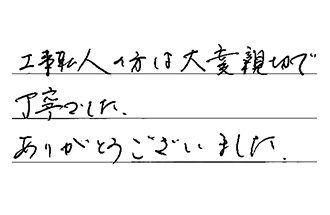 工事人の方は大変親切で
丁寧でした.
ありがとうございました.